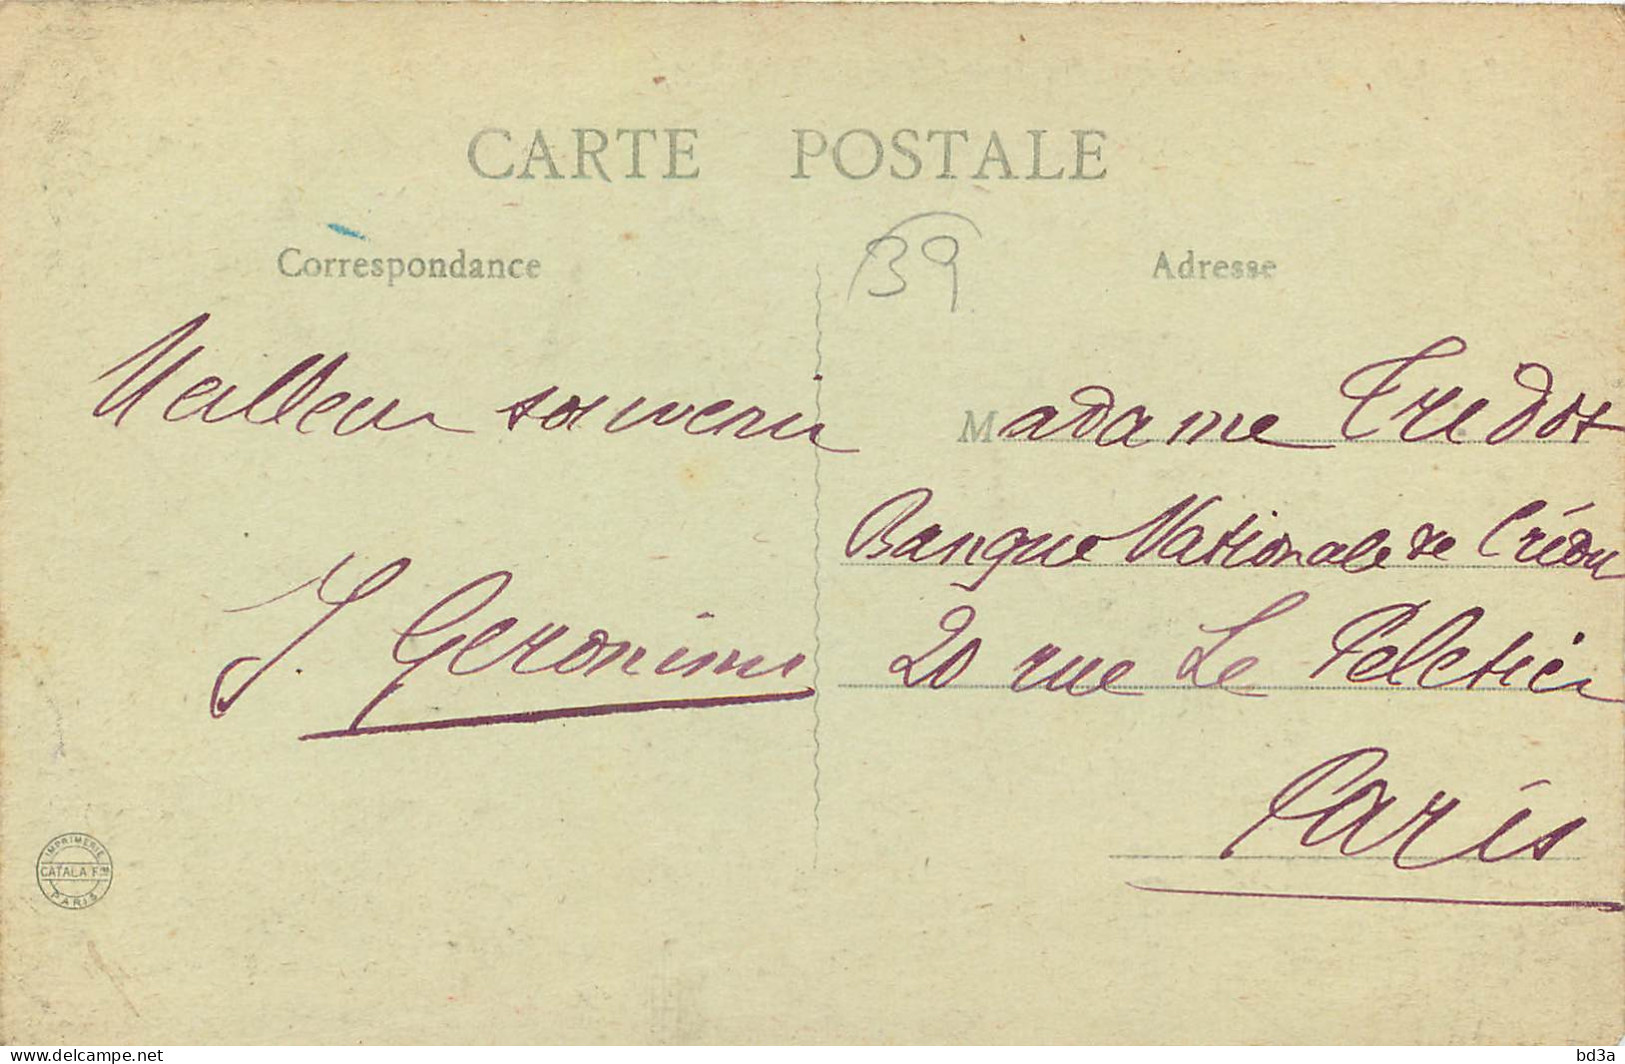 CARTE POSTALE
Correspondance
39
Adresse
Meilleur souvenir
J. Geronimi
Madame Tridot
Banque Nationale de Crédit
20 rue Le Peletier
Paris
IMPRIMERIE
CATALA Fres
PARIS
www.delcampe.net
bd3a